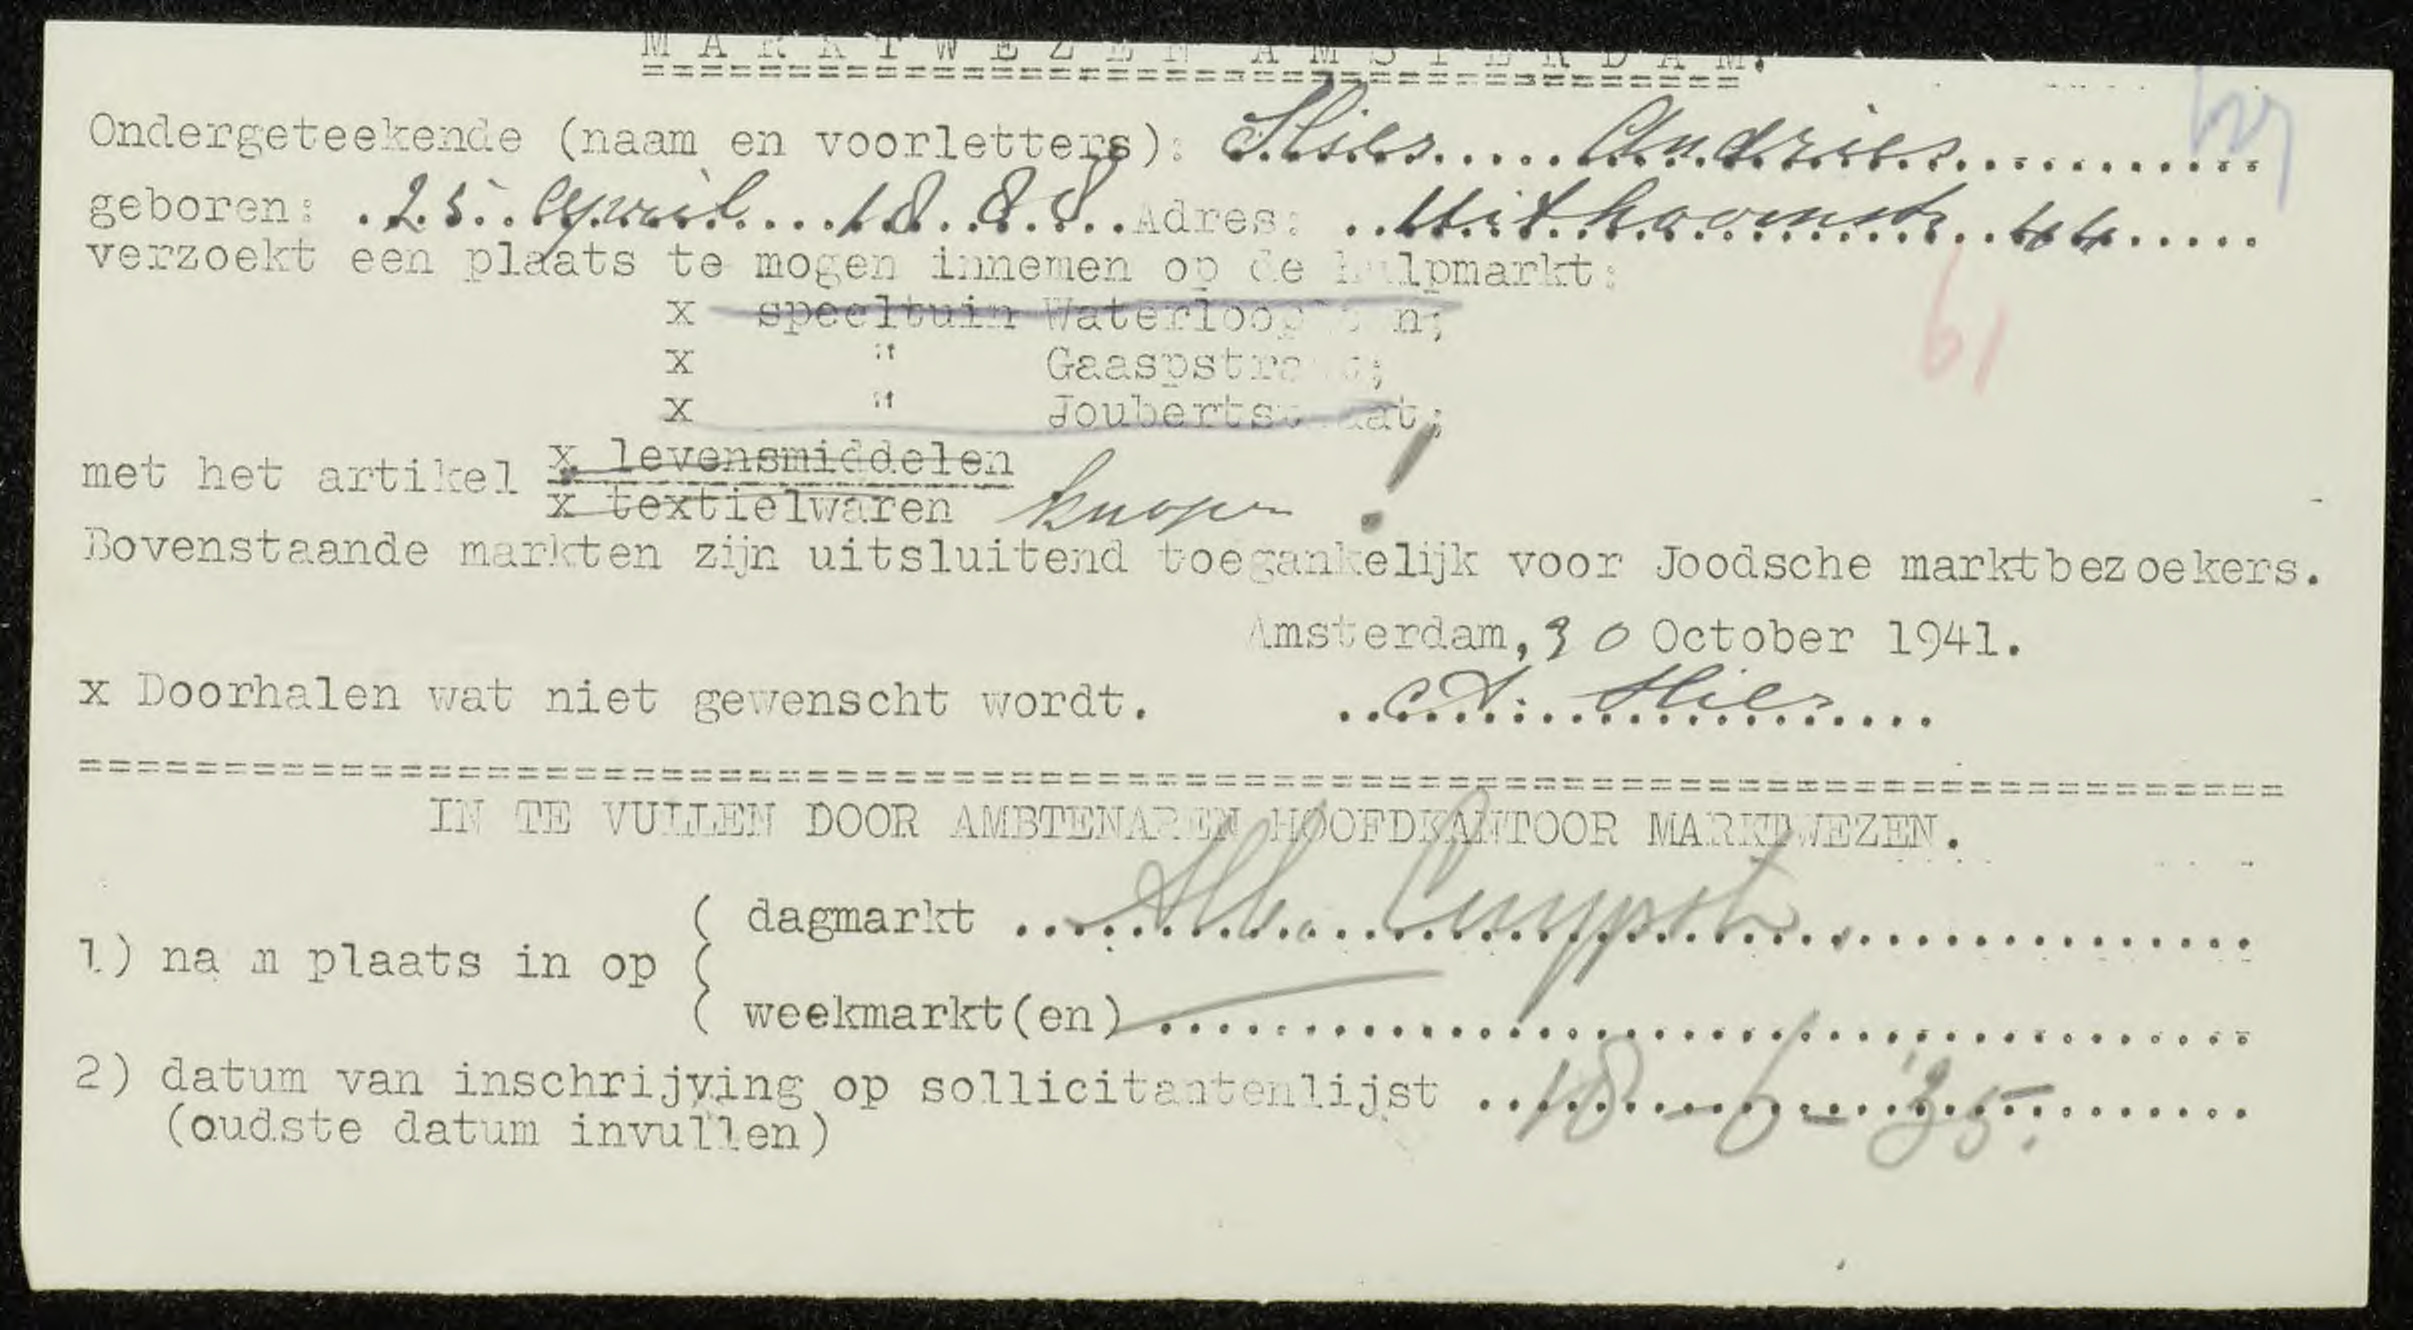 MARKTWEZEN AMSTERDAM.
Ondergeteekende (naam en voorletters): Slier Andries
geboren: 25 April 1888 Adres: Uithoornstr. 44
verzoekt een plaats te mogen innemen op de hulpmarkt:
x speeltuin Waterlooplein;
x " Gaaspstraat;
x " Joubertstraat;
met het artikel x levensmiddelen
x textielwaren knopen !
Bovenstaande markten zijn uitsluitend toegankelijk voor Joodsche marktbezoekers.
Amsterdam, 30 October 1941.
x Doorhalen wat niet gewenscht wordt. A. Slier
IN TE VULLEN DOOR AMBTENAREN HOOFDKANTOOR MARKTWEZEN.
1) nam plaats in op ( dagmarkt Alb. Cuypstr.
( weekmarkt(en)
2) datum van inschrijving op sollicitantenlijst 18-6-'35.
(oudste datum invullen)
61